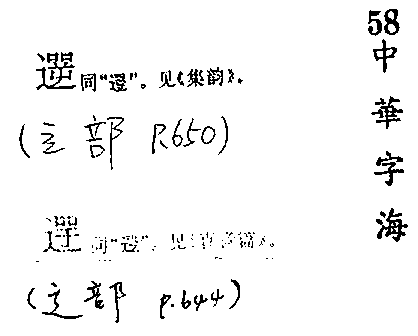 58
中華字海
同“遻”。见《集韵》。
(辶部 P.650)
同“遻”。见《直音篇》。
(辶部 p.644)